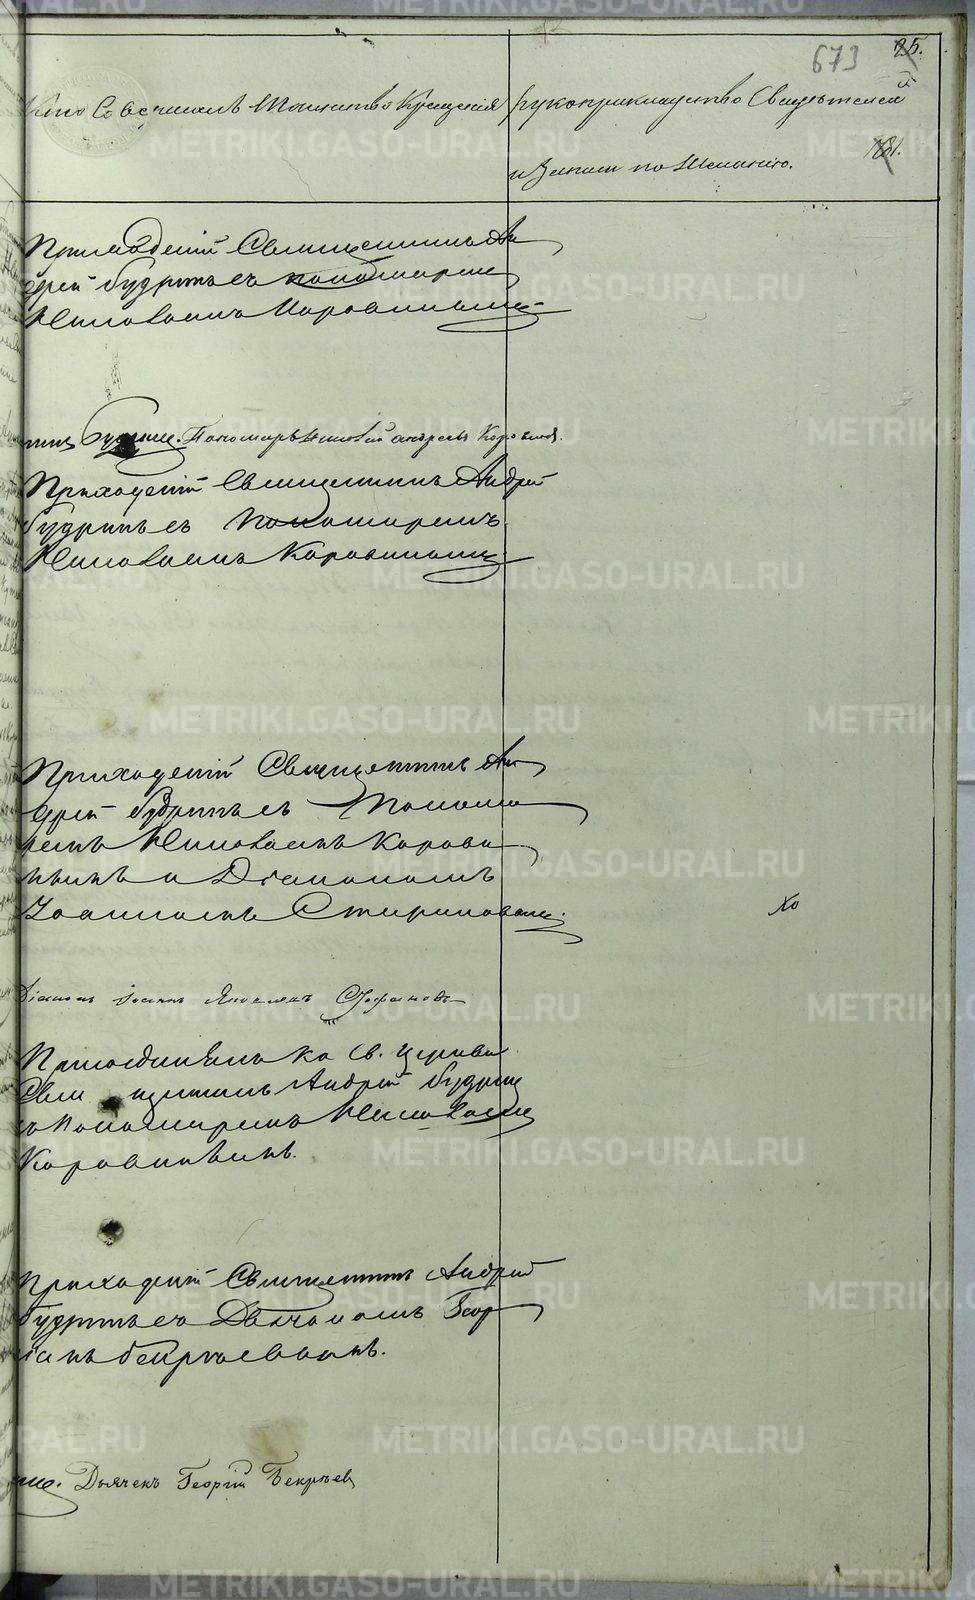 673 25.
Кто Совершалъ Таинство Крещенія
Рукоприкладство Свидѣтелей
и Записи по Желанію.
Приходскій Священникъ Ан
дрей Будринъ съ пономаремъ
Николаемъ Коровинымъ
Будринъ. Пономарь Николай Андреевъ Коровинъ.
Приходскій Священникъ Андрей
Будринъ съ Пономаремъ
Николаемъ Коровинымъ
Приходскій Священникъ Ан
дрей Будринъ съ Понома
ремъ Николаемъ Корови
нымъ и Діакономъ
Іоанномъ
Діаконъ Іоаннъ Яковлевъ
Присоединилъ ко Св. Церкви
Священникъ Андрей Будринъ
съ Пономаремъ Николаемъ
Коровинымъ.
Приходскій Священникъ Андрей
Будринъ съ Дьячкомъ Геор
гіемъ Бекрѣевымъ.
Дьячекъ Георгій Бекрѣевъ
METRIKI.GASO-URAL.RU